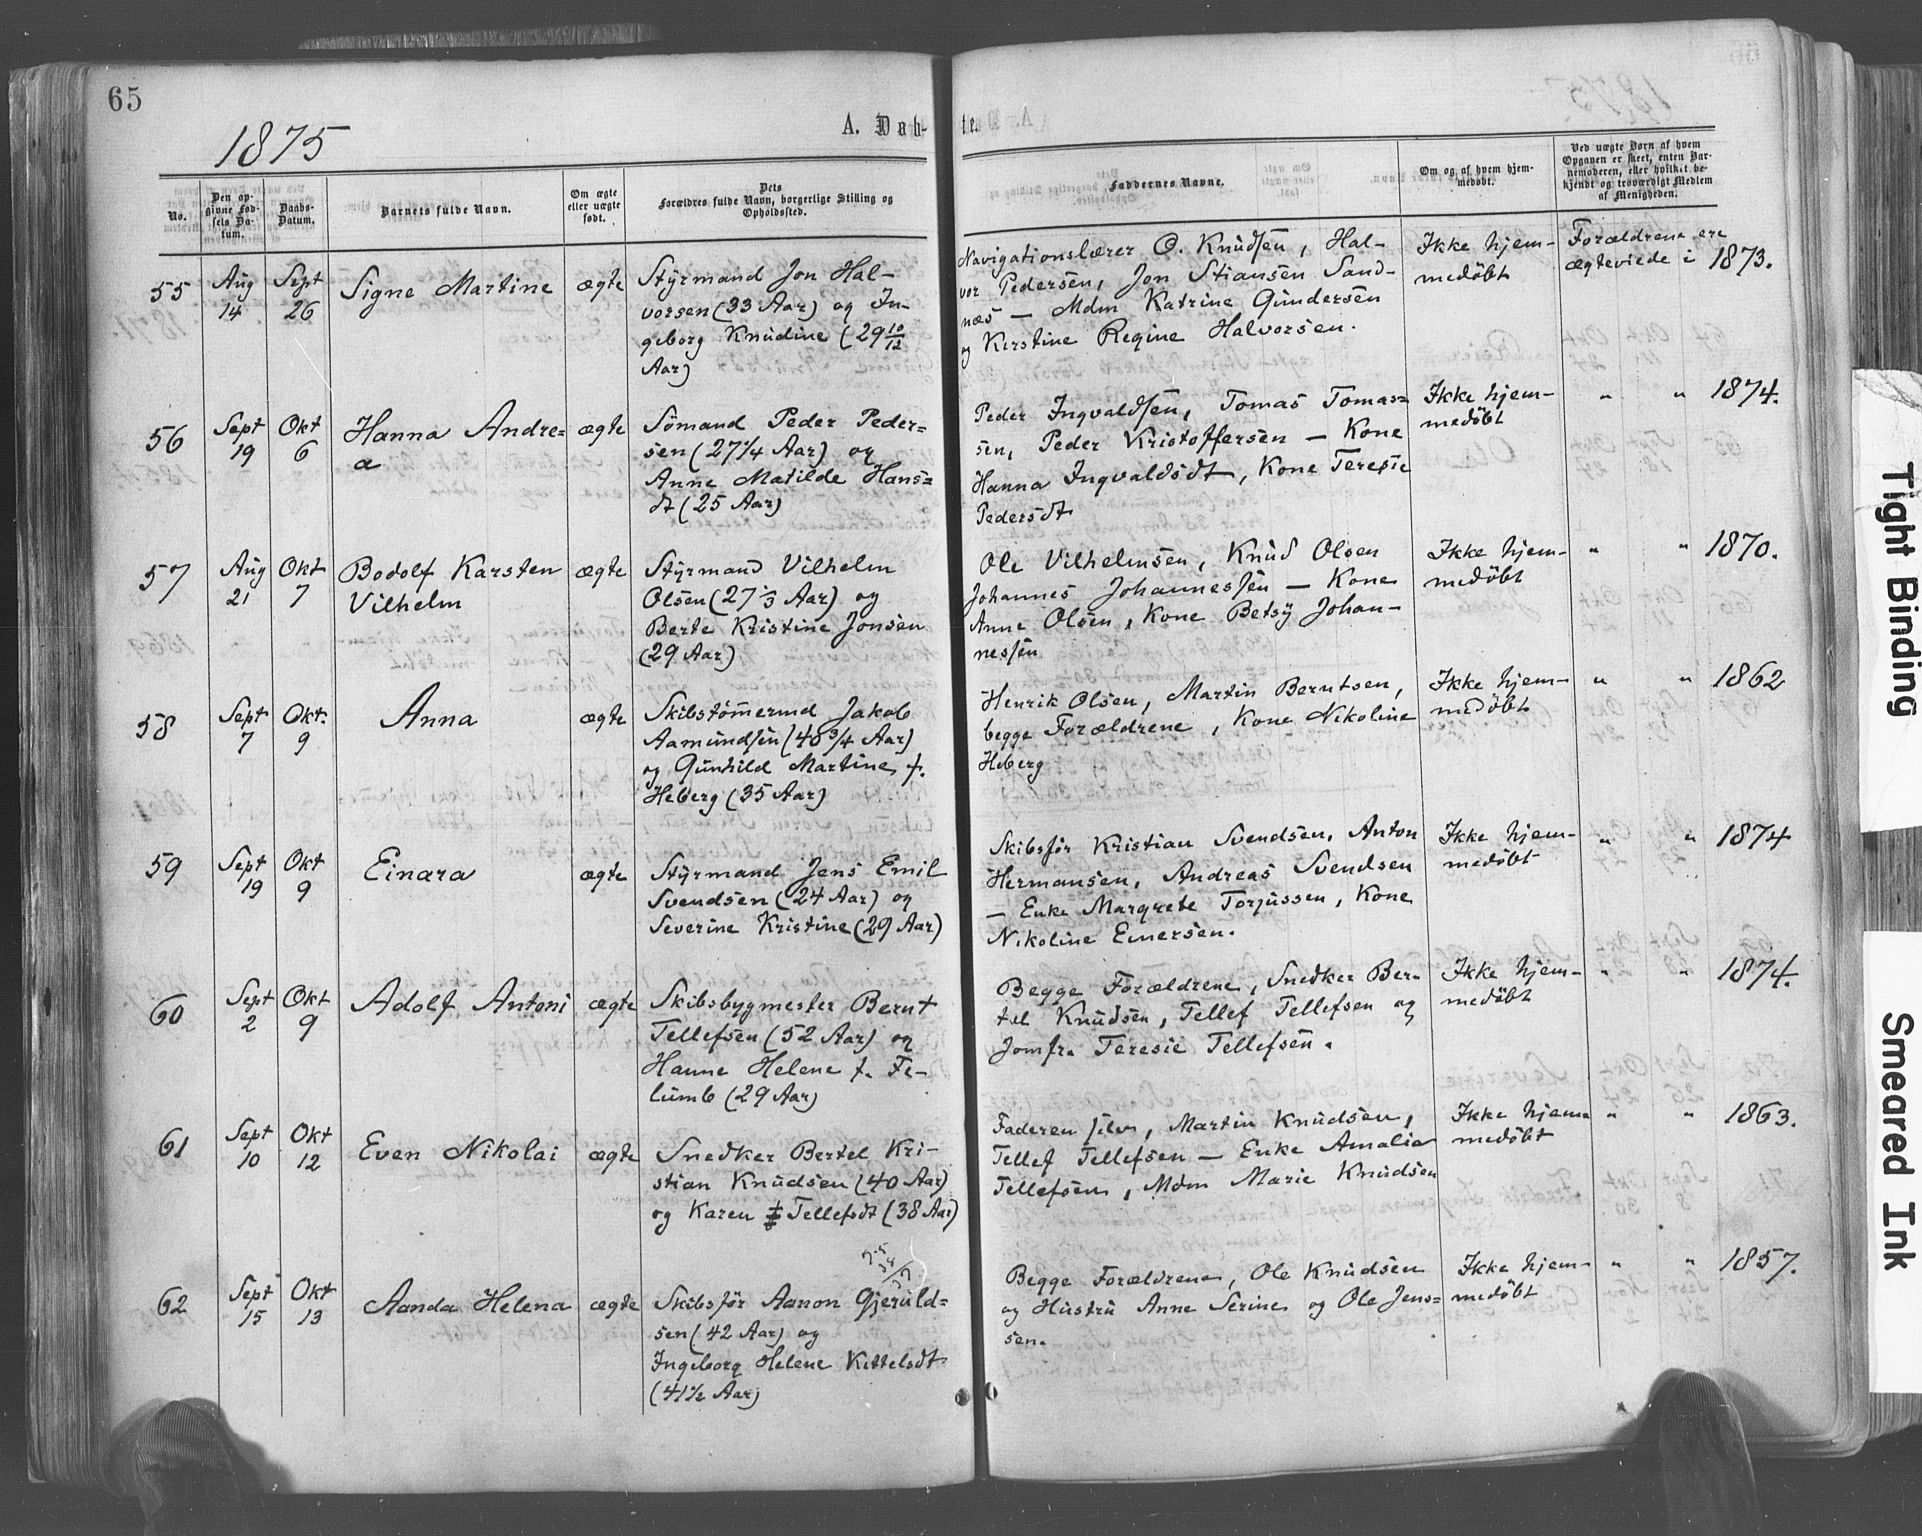 65
1875
A. Døb-
te.
No.
Den op-
givne Fød-
sels Da-
tum.
Daabs-
Datum.
Barnets fulde Navn.
Om ægte
eller uægte
født.
Dets
Forældres fulde Navn, borgerlige Stilling og
Opholdssted.
Faddernes Navne.
Om og af hvem hjem-
medøbt.
Ved uægte Børn af hvem
Opgaven er skeet, enten Bar-
nemoderen, eller hvilket be-
kjendt og troværdigt Medlem
af Menigheden.
55
Aug
14
Sept
26
Signe Martine
ægte
Styrmand Jon Hal-
vorsen (33 Aar) og In-
geborg Knudine (29 10/12
Aar)
Navigationslærer O. Knudsen, Hal-
vor Pedersen, Jon Stiansen Sand-
næs — Mdm Katrine Gundersen
og Kirstine Regine Halvorsen.
Ikke hjem-
medøbt
Forældrene ere
ægteviede i 1873.
56
Sept
19
Okt
6
Hanna Andre=
a
ægte
Sømand Peder Peder=
sen (27 1/4 Aar) og
Anne Matilde Hans=
dt (25 Aar)
Peder Ingvaldsen, Tomas Tomas=
sen, Peder Kristoffersen — Kone
Hanna Ingvaldsdt, Kone Teresie
Pedersdt
Ikke hjem-
medøbt
" " 1874.
57
Aug
21
Okt
7
Bodolf Karsten
Vilhelm
ægte
Styrmand Vilhelm
Olsen (27 1/3 Aar) og
Berte Kristine Jonsen
(29 Aar)
Ole Vilhelmsen, Knud Olsen
Johannes Johannessen — Kone
Anne Olsen, Kone Betsy Johan-
nessen
Ikke hjem-
medøbt
" " 1870.
58
Sept
7
Okt.
9
Anna
ægte
Skibstømermd Jakob
Aamundsen (40 3/4 Aar)
og Gunhild Martine f.
Heberg (35 Aar)
Henrik Olsen, Martin Berntsen,
begge Forældrene, Kone Nikoline
Heberg
Ikke hjem-
medøbt
" " 1862
59
Sept
19
Okt
9
Einara
ægte
Styrmand Jens Emil
Svendsen (24 Aar) og
Severine Kristine (29 Aar)
Skibsfør Kristian Svendsen, Anton
Hermansen, Andreas Svendsen
— Enke Margrete Torjussen, Kone
Nikoline Einersen.
Ikke hjem-
medøbt
" " 1874
60
Sept
2
Okt
9
Adolf Antoni
ægte
Skibsbygmester Bernt
Tellefsen (52 Aar) og
Hanne Helene f. Fe-
lumb (29 Aar)
Begge Forældrene, Snedker Ber-
tel Knudsen, Tellef Tellefsen og
Jomfr. Teresie Tellefsen.
Ikke hjem-
medøbt
" " 1874.
61
Sept
10
Okt
12
Even Nikolai
ægte
Snedker Bertel Kri-
stian Knudsen (40 Aar)
og Karen Tellefsdt (38 Aar)
Faderen selv, Martin Knudsen,
Tellef Tellefsen — Enke Amalia
Tellefsen, Mdm Marie Knudsen
Ikke hjem-
medøbt
" " 1863.
62
Sept
15
Okt
13
Aanda Helena
ægte
Skibsfør Aanon Gjeruld=
sen (42 Aar) og
Ingeborg Helene Kittelsdt
(41 1/2 Aar)
Begge Forældrene, Ole Knudsen
og Hustru Anne Serine og Ole Jens=
sen.
Ikke hjem-
medøbt
" " 1857.
Tight Binding
Smeared Ink